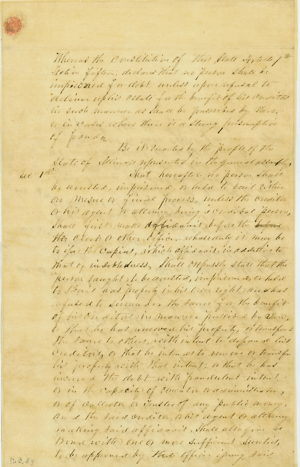 Whereas the Constitution of this State Article 7th
Section fifteen, declares that no person shall be
imprisoned for debt unless upon refusal to
deliver up his estate for the benefit of his creditors
in such manner as shall be prescribed by law,
or in cases where there is a strong presumption
of fraud.
Be it enacted by the people of the
State of Illinois represented in the general assembly,
Sec 1st That hereafter no person shall
be arrested, imprisoned, or held to bail either
on mesne or final process, unless the creditor
or his agent or attorney, being a credible person,
shall first make affidavit before the
Clerk or other officer, whose duty it may be
to issue the Capias, which affidavit in addition to
that of indebtedness, shall expressly state that the
person sought to be arrested, imprisoned or held
to bail has property in his own right, and has
refused to surrender the same for the benefit
of his creditors in manner prescribed by law,
or that he has removed his property, or transferred
the same to others, with intent to defraud his
creditors, or that he intends to remove or transfer
his property with that intent; or that he has
incurred the debt with fraudulent intent
or in the capacity of executor or administrator,
or of collector or holder of any public money
and the said creditor, his agent or attorney
making said affidavit shall also give
bond with one or more sufficient sureties,
to be approved by the officer issuing said